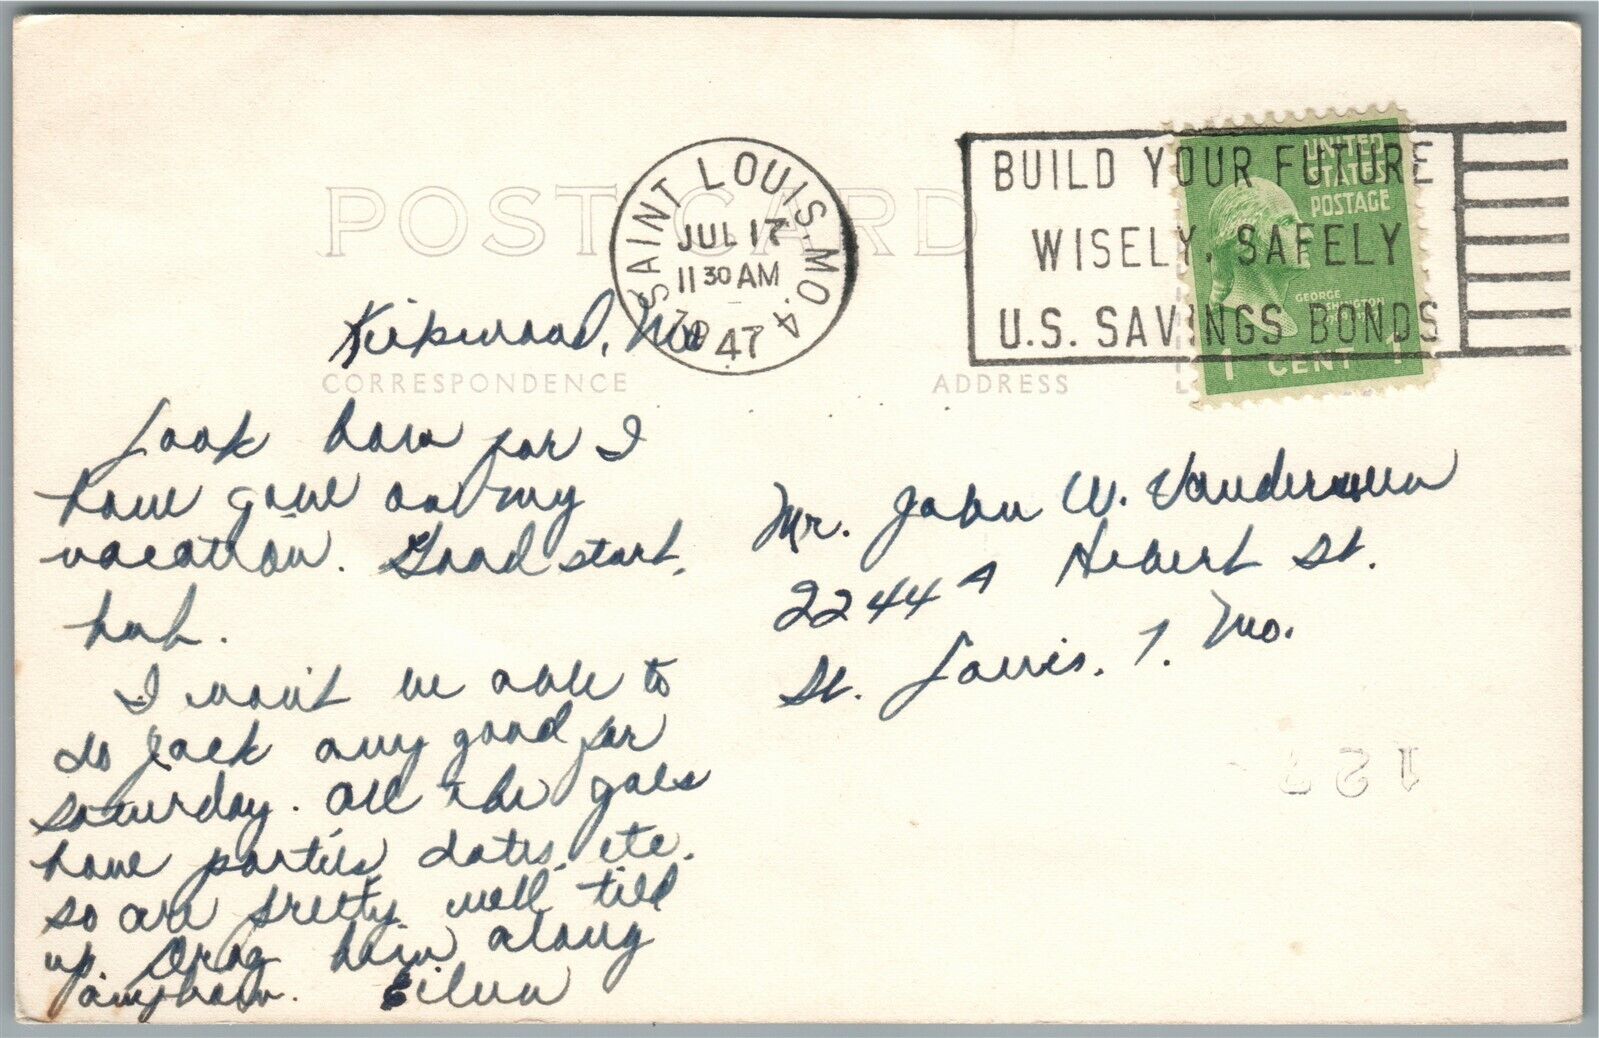 POST CARD
SAINT LOUIS, MO. 4
JUL 17
11 30 AM
47
BUILD YOUR FUTURE
WISELY, SAFELY
U.S. SAVINGS BONDS
UNITED
STATES
POSTAGE
GEORGE
WASHINGTON
1 CENT 1
Kirkwood, Mo
CORRESPONDENCE
ADDRESS
Look how far I
have gone on my
vacation. Good start,
huh.
I won't be able to
do Jack any good for
Saturday. All the gals
have parties, dates, etc.
so are pretty well tied
up. Drag him along
anyhow. Eileen
Mr. John W.
2244A Hebert St.
St. Louis, 7. Mo.